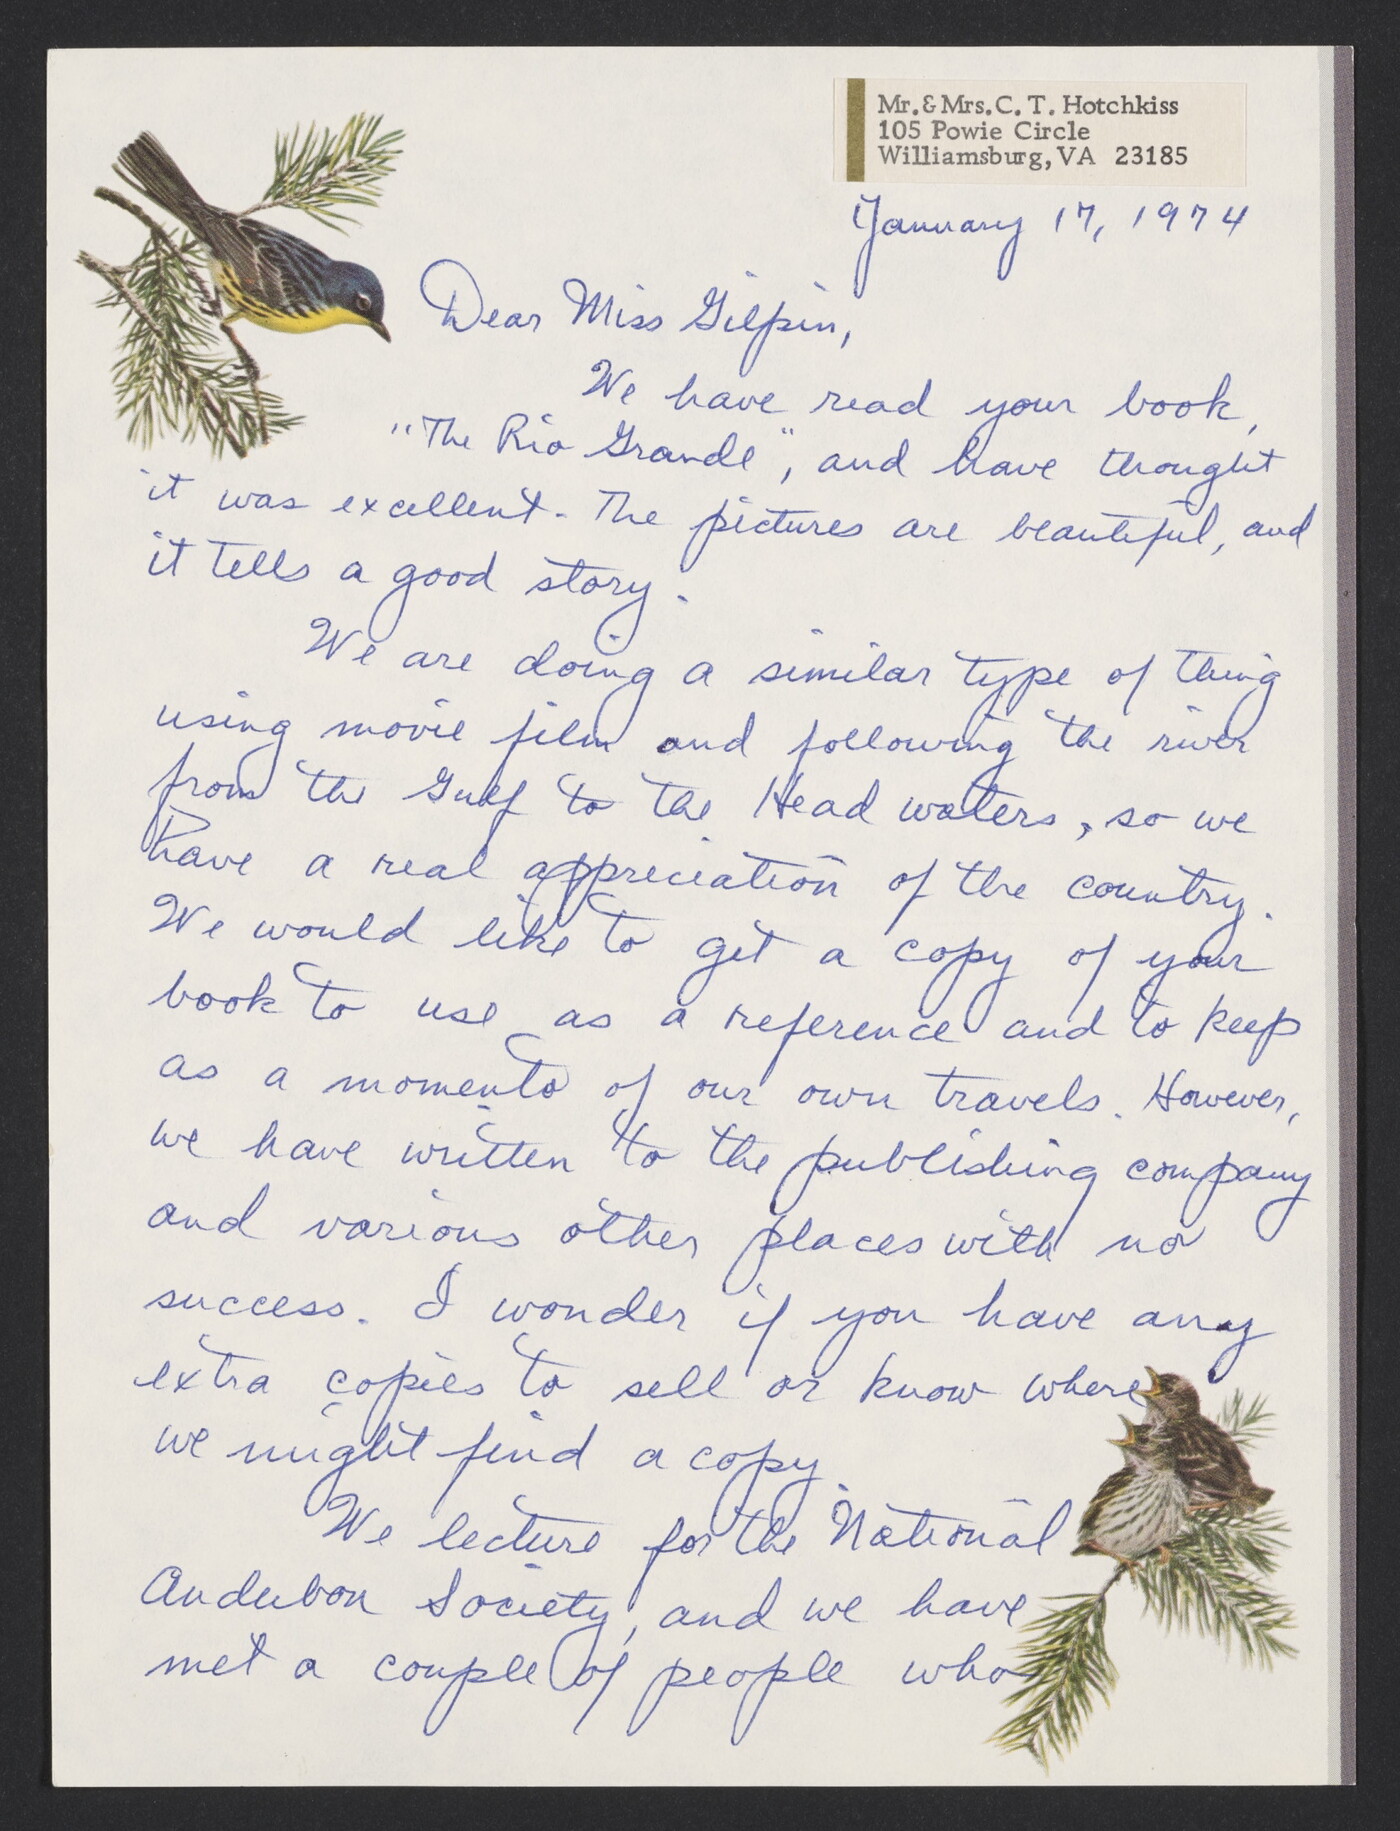 Mr. & Mrs. C. T. Hotchkiss
105 Powie Circle
Williamsburg, VA 23185
January 17, 1974
Dear Miss Gilpin,
We have read your book,
"The Rio Grande", and have thought
it was excellent. The pictures are beautiful, and
it tells a good story.
We are doing a similar type of thing
using movie film and following the river
from the Gulf to the Head waters, so we
have a real appreciation of the country.
We would like to get a copy of your
book to use as a reference and to keep
as a momento of our own travels. However,
we have written to the publishing company
and various other places with no
success. I wonder if you have any
extra copies to sell or know where
we might find a copy.
We lecture for the National
Audubon Society, and we have
met a couple of people who